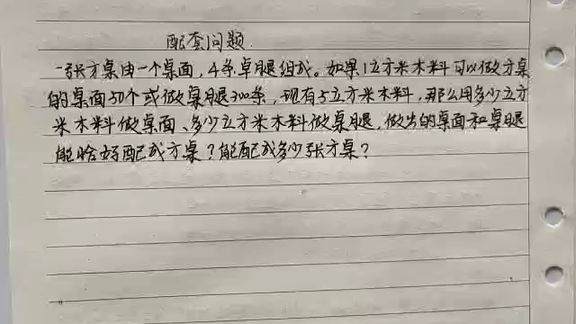 配套问题
一张方桌由一个桌面,4条桌腿组成。如果1立方米木料可以做方桌
的桌面50个或做桌腿300条,现有5立方米木料,那么用多少立方
米木料做桌面、多少立方米木料做桌腿,做出的桌面和桌腿
能恰好配成方桌?能配成多少张方桌?